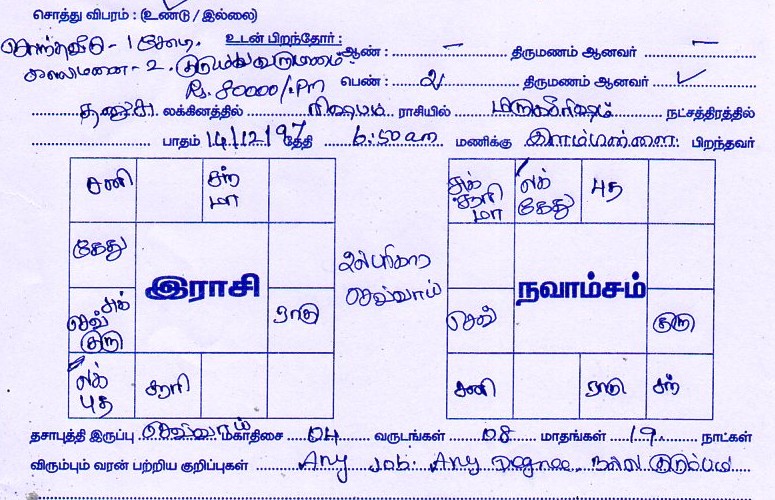 சொத்து விபரம் : (உண்டு / இல்லை)
சொந்தவீடு - 1 கோடி. உடன் பிறந்தோர் : ஆண் : – திருமணம் ஆனவர் –
காலமனை - 2. குடும்பவருமானம்
Rs. 80000/- PM பெண் : 2 திருமணம் ஆனவர் ✓
தனுசு லக்கினத்தில் ரிஷபம் ராசியில் மிருகசீரிஷம் நட்சத்திரத்தில்
பாதம் 14/12/97 தேதி 6:50 am மணிக்கு இளம்பிள்ளை பிறந்தவர்
சனி சந் மா
கேது
இராசி
சுக் செவ் குரு ராகு
லக் புத சூரி
உபரிகார செவ்வாய்
சுக் சூரி மா லக் கேது புத
நவாம்சம்
செவ் குரு
சனி ராகு சந்
தசாபுத்தி இருப்பு செவ்வாய் மகாதிசை 04 வருடங்கள் 08 மாதங்கள் 19 நாட்கள்
விரும்பும் வரன் பற்றிய குறிப்புகள் Any Job. Any Degree. நல்ல குடும்பம்